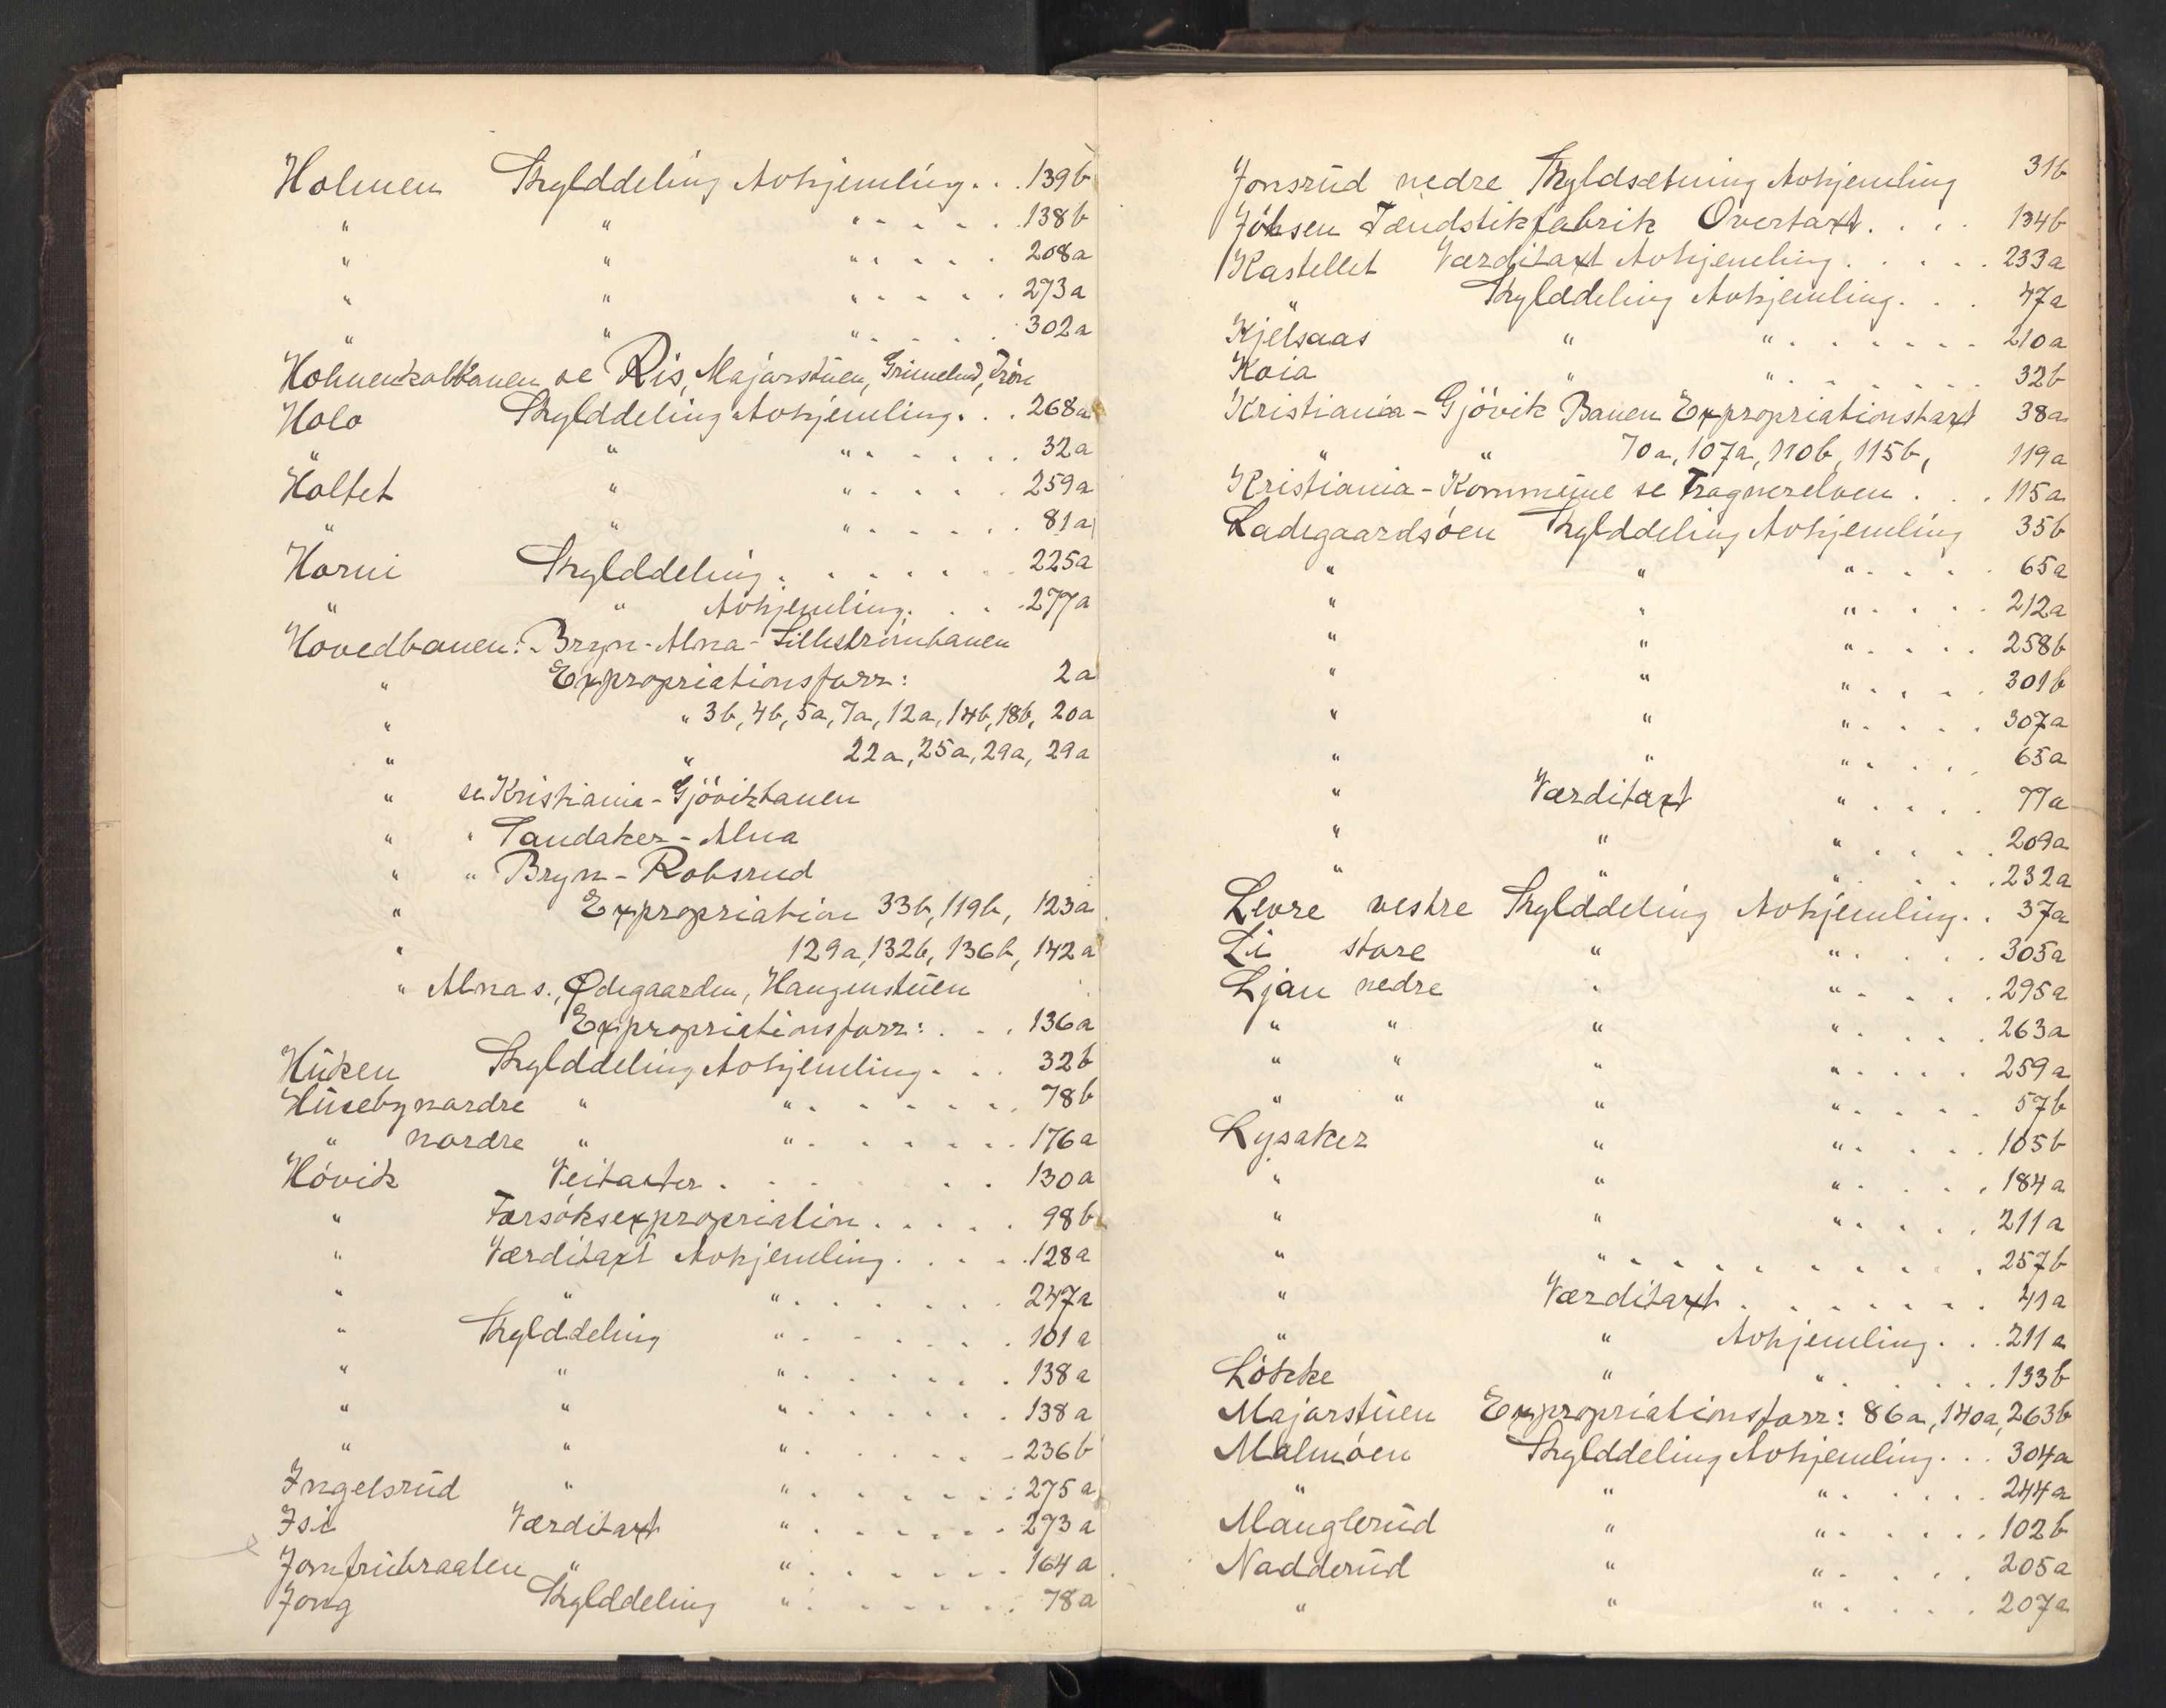 Holmen Skylddeling Avhjemling. . . 139b
" " " . . . . . 138b
" " " . . . . . 208a
" " " . . . . . 273a
" " " . . . . . 302a
Holmenkolbanen se Ris, Majorstuen, Grimelund, Frøn
Holo Skylddeling Avhjemling. . . 268a
" " " . . . . . 32a
Holtet " " . . . . . 259a
" " " . . . . . 81a
Horni Skylddeling . . . . . . 225a
" " Avhjemling. . . . 277a
Hovedbanen: Bryn-Alna-Lillestrømbanen
" Expropriationsforr: 2a
" " 3b, 4b, 5a, 7a, 12a, 14b, 18b, 20a
" " 22a, 25a, 29a, 29a
" se Kristiania-Gjövikbanen
" " Tandaker-Alna
" " Bryn-Robsrud
" Expropriation 33b, 119b, 123a
" 129a, 132b, 136b, 142a
" Alna s., Ødegaarden, Haugenstuen
Expropriationsforr: . . . 136a
Huken Skylddeling Avhjemling . . . 32b
Huseby nordre " " . . . . . . 78b
" nordre " " . . . . . . 176a
Hövik Veitakter . . . . . . . 130a
" Forsöksexpropriation . . . . . 98b
" Værditaxt Avhjemling . . . . 128a
" " " . . . . . . 247a
" Skylddeling " . . . . . . 101a
" " " . . . . . . 138a
" " " . . . . . . 138a
" " " . . . . . . 236b
Ingelsrud " " . . . . . . 275a
Isi Værditaxt " . . . . . . 273a
Jomfrubraaten " " . . . . . . 164a
Jong Skylddeling " . . . . . . 78a
Jonsrud nedre Skyldsætning Avhjemling 31b
Jölsen Tændstikfabrik Overtaxt . . . . 134b
Kastellet Værditaxt Avhjemling . . . . . 233a
" Skylddeling Avhjemling . . . 47a
Kjelsaas " " . . . . . . . 210a
Koia " " . . . . . . . 32b
Kristiania-Gjövik Banen Expropriationstaxt 38a
" " 70a, 107a, 110b, 115b, 119a
Kristiania-Kommune se Frognerelven . . . 115a
Ladegaardsöen Skylddeling Avhjemling 35b
" " " . . . . 65a
" " " . . . . 212a
" " " . . . . 258b
" " " . . . . 301b
" " " . . . . 307a
" " " . . . . 65a
" Værditaxt " . . . . 77a
" " " . . . . 209a
" " " . . . . 232a
Levre vestre Skylddeling Avhjemling. . 37a
Li store " " . . . . 305a
Ljan nedre " " . . . . 295a
" " " " . . . . 263a
" " " " . . . . 259a
" " " " . . . . 57b
Lysaker " " . . . . 105b
" " " . . . . 184a
" " " . . . . 211a
" " . . . . . . . . . . 257b
" Værditaxt . . . . . . . 41a
" " Avhjemling . . . 211a
Lökke " " . . . . . 133b
Majorstuen Expropriationsforr: 86a, 140a, 263b
Malmöen Skylddeling Avhjemling . . . 304a
" " " . . . . . 244a
Manglerud " " . . . . . 102b
Nadderud " " . . . . 205a
" " " . . . . 207a